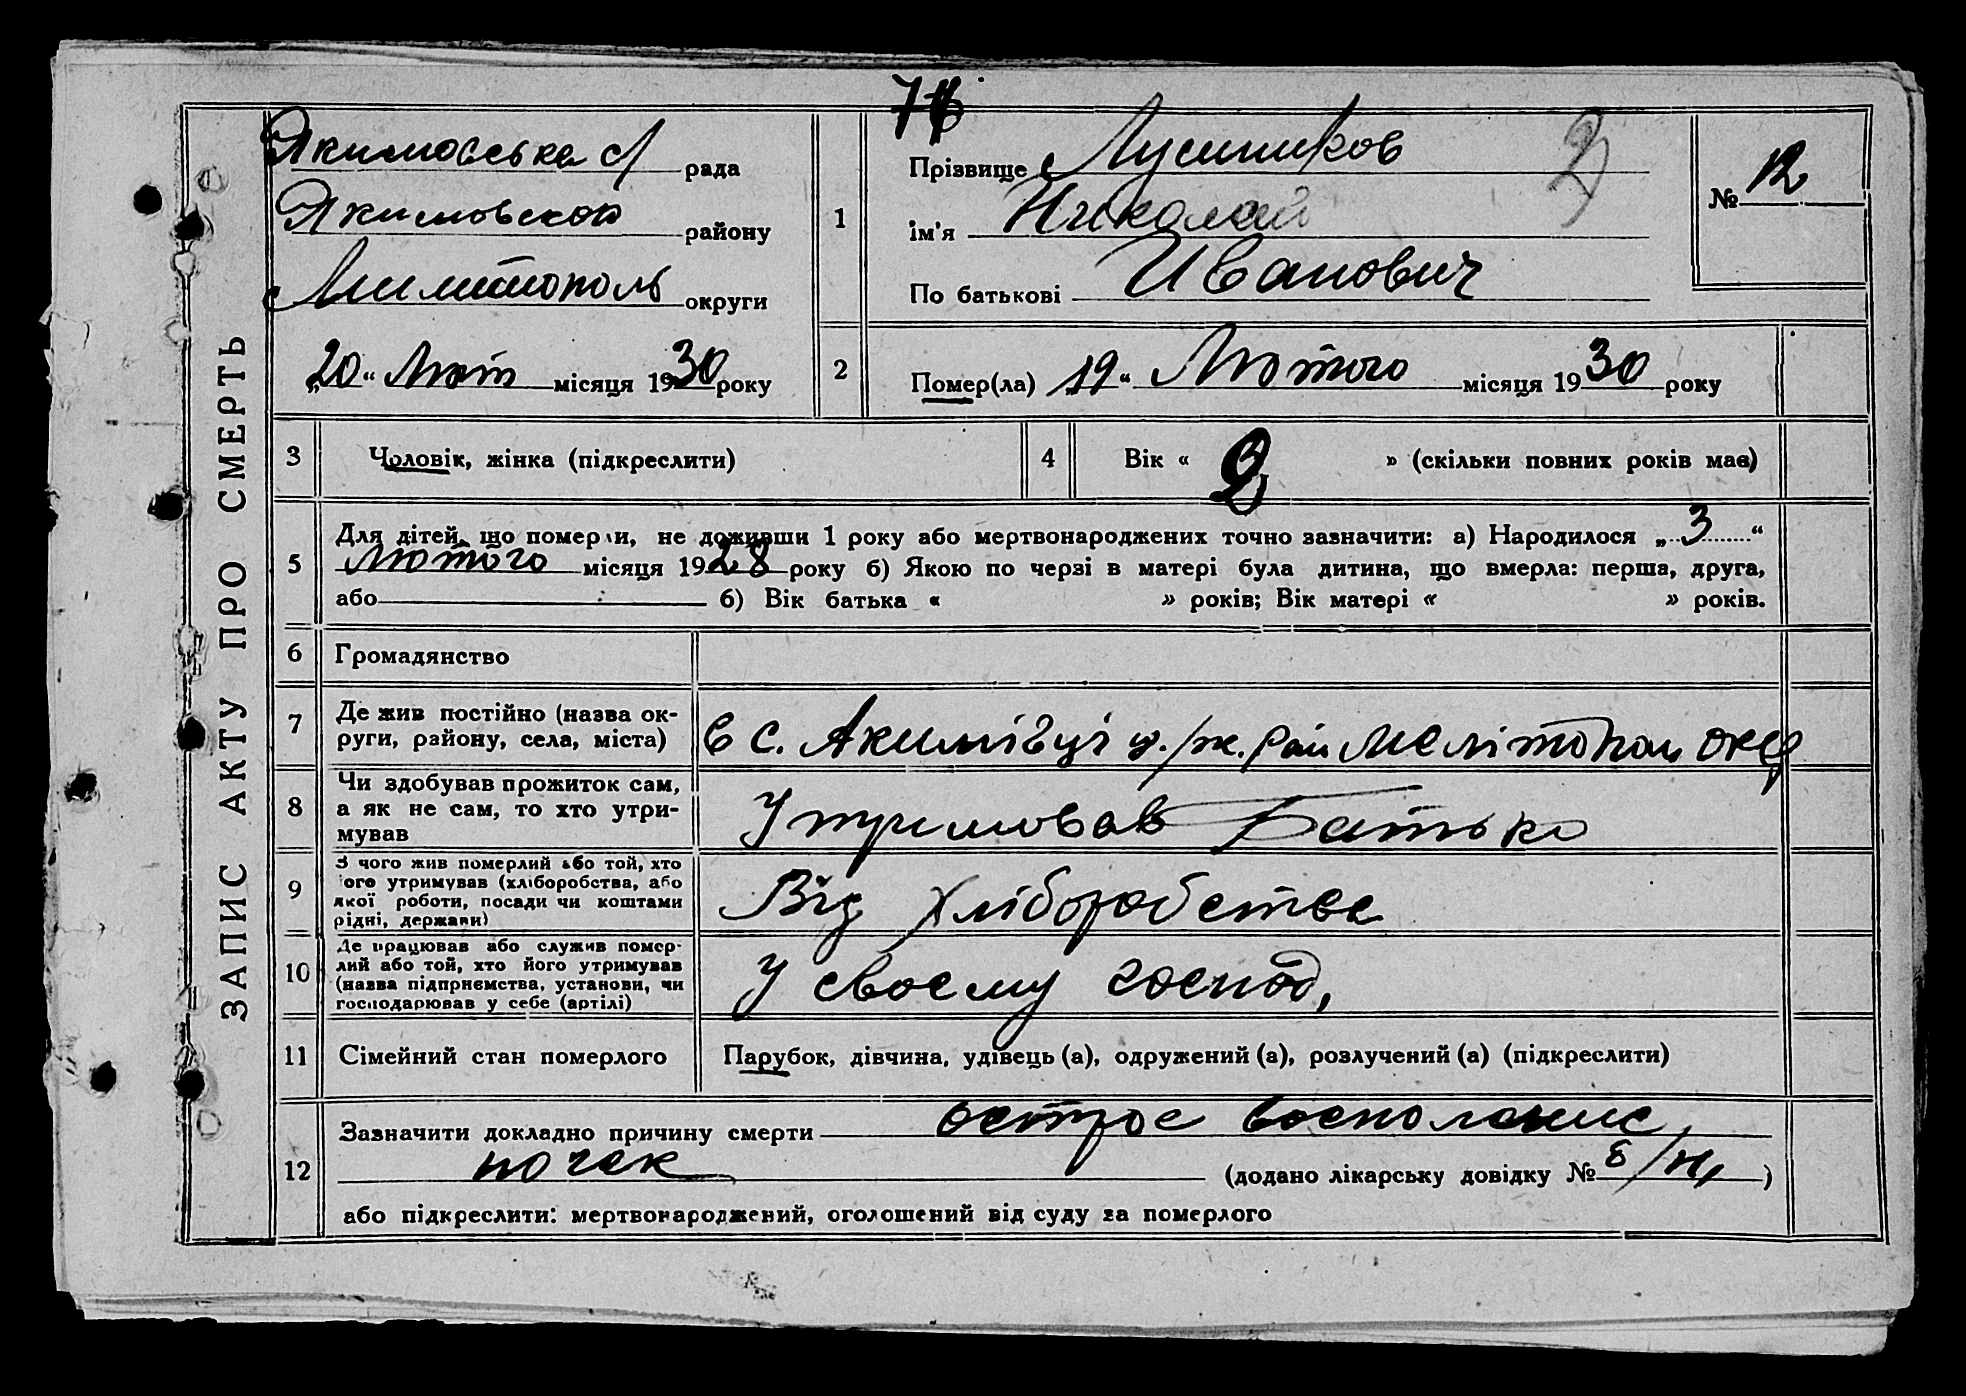 ЗАПИС АКТУ ПРО СМЕРТЬ
Якимовська с/ рада
Якимовской району
Милитополь округи
„20“ Лют місяця 1930 року
1
Прізвище
ім'я Николай
По батькові Иванович
№ 12
2
Помер(ла) „19“ Лютого місяця 1930 року
3 Чоловік, жінка (підкреслити)
4 Вік « 2 » (скільки повних років має)
5 Для дітей, що померли, не доживши 1 року або мертвонароджених точно зазначити: а) Народилося „3“
Лютого місяця 1928 року б) Якою по черзі в матері була дитина, що вмерла: перша, друга,
або б) Вік батька « » років; Вік матері « » років.
6 Громадянство
7 Де жив постійно (назва ок-
руги, району, села, міста)
в с. Акимівці рай Мелітопол окр
8 Чи здобував прожиток сам,
а як не сам, то хто утри-
мував
Утримовав Батько
9 З чого жив померлий або той, хто
його утримував (хліборобства, або
якої роботи, посади чи коштами
рідні, держави)
Від хліборобства
10 Де працював або служив помер-
лий або той, хто його утримував
(назва підприємства, установи, чи
господарював у себе (артілі)
У своєму господ,
11 Сімейний стан померлого
Парубок, дівчина, удівець (а), одружений (а), розлучений (а) (підкреслити)
12 Зазначити докладно причину смерти острое восполение
почек (додано лікарську довідку № б/н)
або підкреслити: мертвонароджений, оголошений від суду за померлого